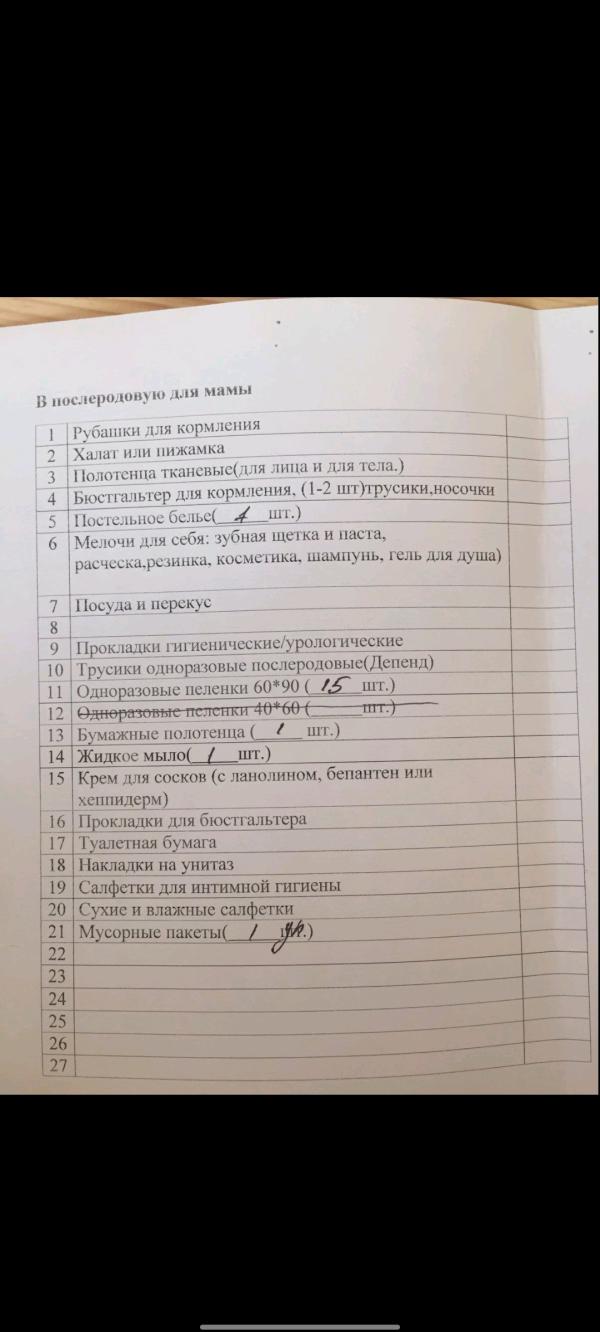 В послеродовую для мамы
1 Рубашки для кормления
2 Халат или пижамка
3 Полотенца тканевые(для лица и для тела.)
4 Бюстгальтер для кормления, (1-2 шт)трусики,носочки
5 Постельное белье( шт.)
6 Мелочи для себя: зубная щетка и паста,
расческа,резинка, косметика, шампунь, гель для душа)
7 Посуда и перекус
8
9 Прокладки гигиенические/урологические
10 Трусики одноразовые послеродовые(Депенд)
11 Одноразовые пеленки 60*90 ( 15 шт.)
12 Одноразовые пеленки 40*60 (______шт.)
13 Бумажные полотенца ( 1 шт.)
14 Жидкое мыло( 1 шт.)
15 Крем для сосков (с ланолином, бепантен или
хеппидерм)
16 Прокладки для бюстгальтера
17 Туалетная бумага
18 Накладки на унитаз
19 Салфетки для интимной гигиены
20 Сухие и влажные салфетки
21 Мусорные пакеты( 1 шт.)
22
23
24
25
26
27